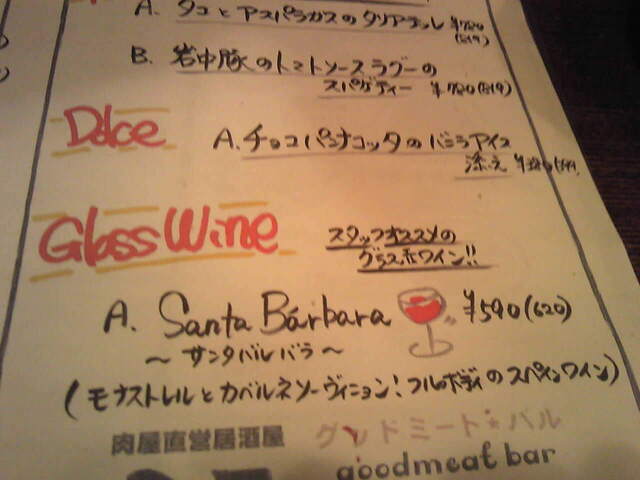 A. タコとアスパラガスのタリアテッレ ¥780
(819)
B. 岩中豚のトマトソースラグーの
スパゲティー ¥780(819)
Dolce
A. チョコパンナコッタのバニラアイス
添え
Glass Wine
スタッフオススメの
グラスホワイン!!
A. Santa Bárbara ¥590(620)
〜サンタバルバラ〜
(モナストレルとカベルネソーヴィニョン!フルボディのスペインワイン)
肉屋直営居酒屋
グッドミート★バル
goodmeat bar